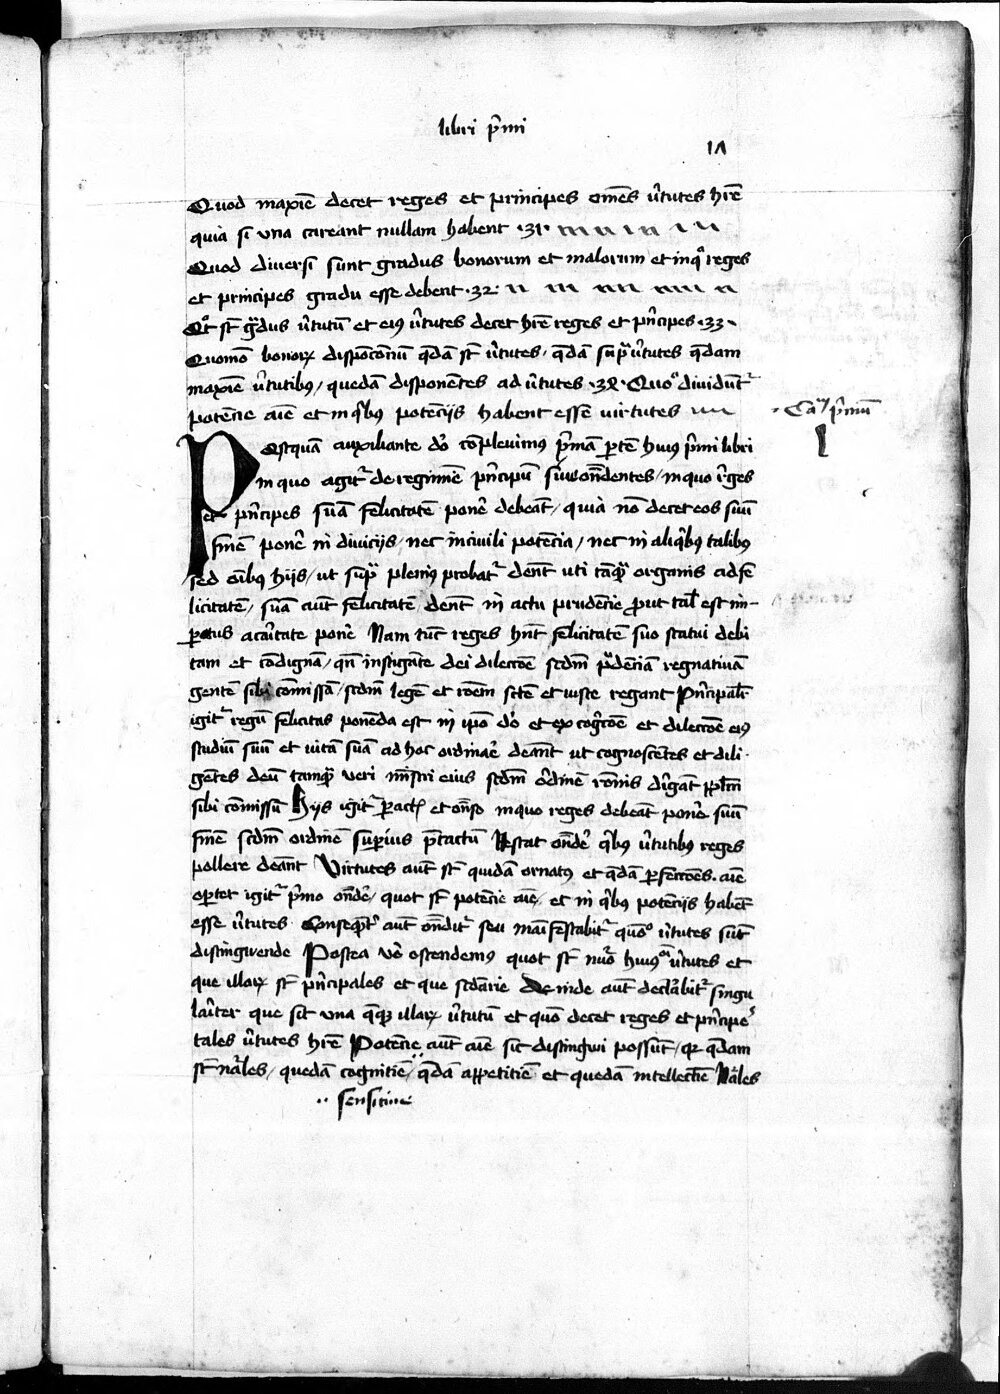 libri p̄mi
17
Quod maxīe decet reges et principes om̄es v̄tutes hr̄e
quia si vna careant nullam habent ·31·
Quod diuersi sunt gradus bonorum et malorum et inq̊ reges
et principes gradu esse debent ·32·
st̄ gͣdus v̄tutū et eiꝰ v̄tutes decet hr̄e reges et pn̄cipes ·33·
Quomō bonoꝝ disponū q̄dā st̄ v̄tutes / q̄dā supͣ v̄tutes q̄dam
maxīe v̄tutibꝰ / quedā disponētes ad v̄tutes ·34· Quo͛ diuidūt᷑
potēcie aīe et in qͥbꝰ potēciis habent esse virtutes
Caͫ p̄mū
Postquā auxiliante dō cōpleuimꝰ p̄mā ꝑtē huiꝰ p̄mi libri
in quo agit᷑ de regimīe pn̄cipū siue on̄dentes / in quo r̄ges
et pn̄cipes suā felicitatē pon̄e debeāt / quia nō decet eos suū
finē pon̄e in diuiciis / nec in ciuili potēcia / nec in aliqͥbꝰ talibꝰ
sed oībꝰ hiis / ut supͣ pleniꝰ probat᷑ dent̄ uti tāqͣ organis ad fe
licitatē / suā aut̄ felicitatē dent̄ in actu prudēcie ꝓut tal̄ est im-
peratus a caritate pon̄e Nam tūc reges hn̄t felicitatē suo statui debi
tam et cōdignā / qn̄ instigāte dei dileccōe scdm̄ pͣdēciā regnatiuā
gentē sibi cōmissā / scdm̄ legē et rōem sctē et iuste regant pn̄cipalr̄
igit᷑ regū felicitas ponēda est in ip̄o dō et ex cogn̄cōe et dileccōe eiꝰ
studiū suū et uitā suā ad hoc ordinar̄ deānt ut cognoscētes et dili-
gētes deū tamqͣ veri mīstri eius scdm̄ ordinē rōnis dirigāt ppl̄m
sibi cōmissū Hiis igit᷑ ꝑactꝭ et on̄so in quo reges debeāt pon̄e suū
finē scdm̄ ordinē suꝑius p̄tactū Restat on̄de᷑ qͥbꝰ v̄tutibꝰ reges
pollere deānt Virtutes aut̄ st̄ quidā ornatꝰ et q̄dā ꝑfeccōes aīe
oꝑtet igit᷑ p̄mo on̄de᷑ / quot st̄ potēcie aīe / et in qͥbꝰ potēciis habēt
esse v̄tutes Consequēt᷑ aut̄ on̄dit᷑ seu māifestabit᷑ quō v̄tutes sūt
distingwende Postea vō ostendemꝰ quot st̄ nūo huiꝰͫ v̄tutes et
que illaꝝ st̄ pn̄cipales et que scdārie Deinde aut̄ declͣbit᷑ singu
larit̄ que sit vna queqꝫ illaꝝ v̄tutū et quō decet reges et pn̄cipes
tales v̄tutes hr̄e Potēcie aut̄ aīe sic distingwi possūt / qꝛ q̄dam
st̄ nͣles / quedā cognitīe q̄dā appetitīe et quedā intellectīe Nͣles
·· sensitiue